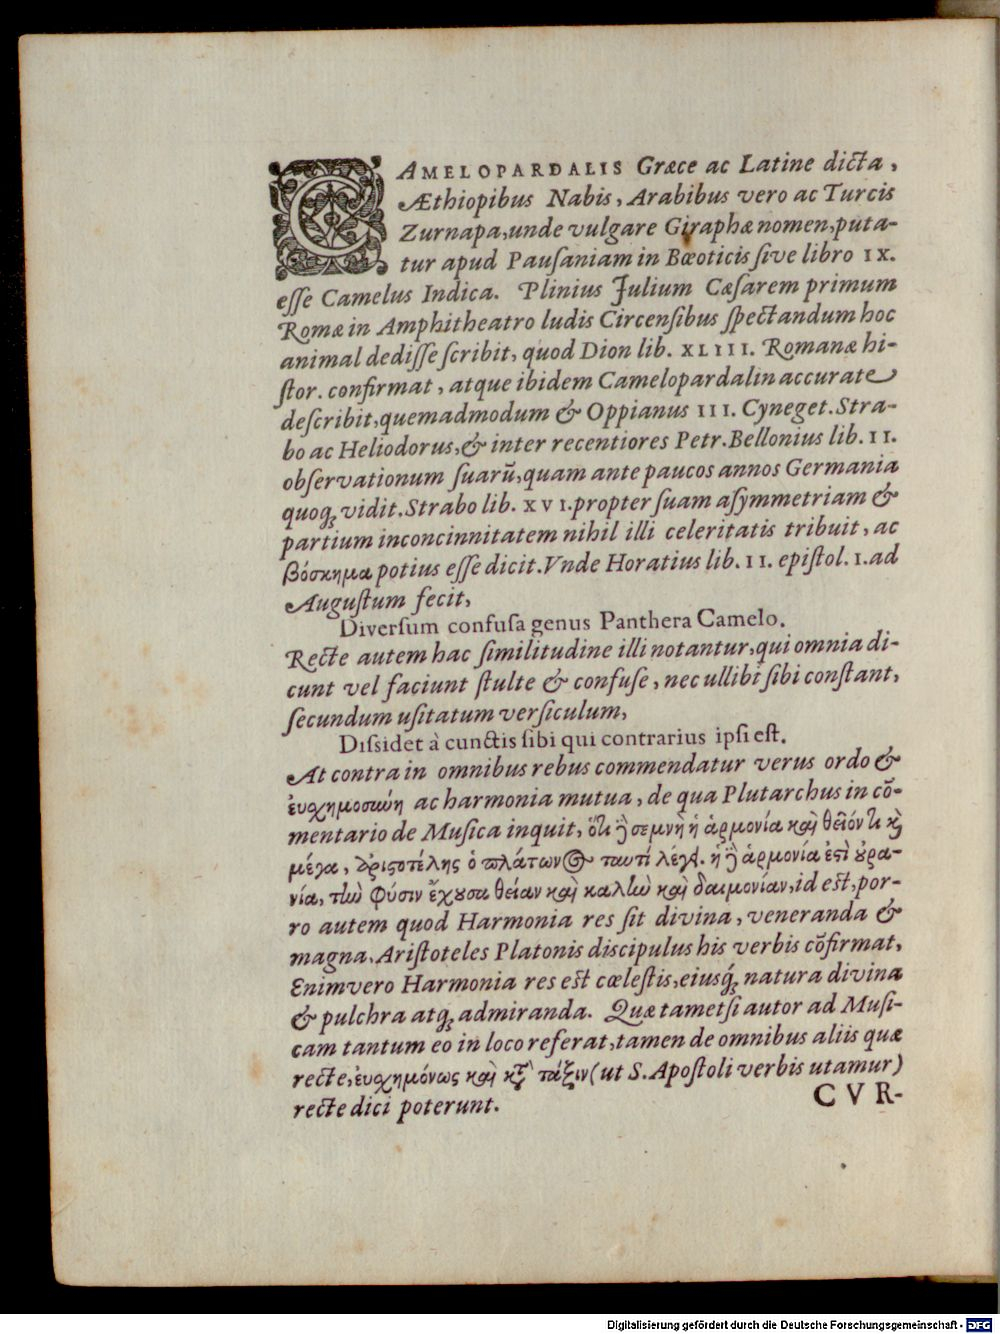 CAMELOPARDALIS Græce ac Latine dicta,
Æthiopibus Nabis, Arabibus vero ac Turcis
Zurnapa, unde vulgare Giraphæ nomen, puta-
tur apud Pauſaniam in Bœoticis ſive libro IX.
eſſe Camelus Indica. Plinius Julium Cæſarem primum
Romæ in Amphitheatro ludis Circenſibus ſpectandum hoc
animal dediſſe ſcribit, quod Dion lib. XLIII. Romanæ hi-
ſtor. confirmat, atque ibidem Camelopardalin accurate
deſcribit, quemadmodum & Oppianus III. Cyneget. Stra-
bo ac Heliodorus, & inter recentiores Petr. Bellonius lib. II.
obſervationum ſuarũ, quam ante paucos annos Germania
quoq; vidit. Strabo lib. XVI. propter ſuam aſymmetriam &
partium inconcinnitatem nihil illi celeritatis tribuit, ac
βόσκημα potius eſſe dicit. Vnde Horatius lib. II. epiſtol. I. ad
Auguſtum fecit,
Diverſum confuſa genus Panthera Camelo.
Recte autem hac ſimilitudine illi notantur, qui omnia di-
cunt vel faciunt ſtulte & confuſe, nec ullibi ſibi conſtant,
ſecundum uſitatum verſiculum,
Diſsidet à cunctis ſibi qui contrarius ipſi eſt.
At contra in omnibus rebus commendatur verus ordo &
ἐυσχημοσύνη ac harmonia mutua, de qua Plutarchus in cõ-
mentario de Muſica inquit, ὅτι ἢ σεμνὴ ἡ ἁρμονία καὶ θεῖόν τι κỳ
μέγα, Ἀριςοτέλης ὁ πλάτωνος ταυτί λέγει. ἡ ἢ ἁρμονία ἐςὶ ȣ̓ρα-
νία, τὴν φύσιν ἔχȣσα θείαν καὶ καλὴν καὶ δαιμονίαν, id eſt, por-
ro autem quod Harmonia res ſit divina, veneranda &
magna, Ariſtoteles Platonis diſcipulus his verbis cõfirmat,
Enimvero Harmonia res eſt cœleſtis, eiusq́; natura divina
& pulchra atq; admiranda. Quæ tametſi autor ad Muſi-
cam tantum eo in loco referat, tamen de omnibus aliis quæ
recte, ἐυσχημόνως καὶ κτ̀ τάξιν (ut S. Apoſtoli verbis utamur)
recte dici poterunt.
CVR-
Digitalisierung gefördert durch die Deutsche Forschungsgemeinschaft - DFG